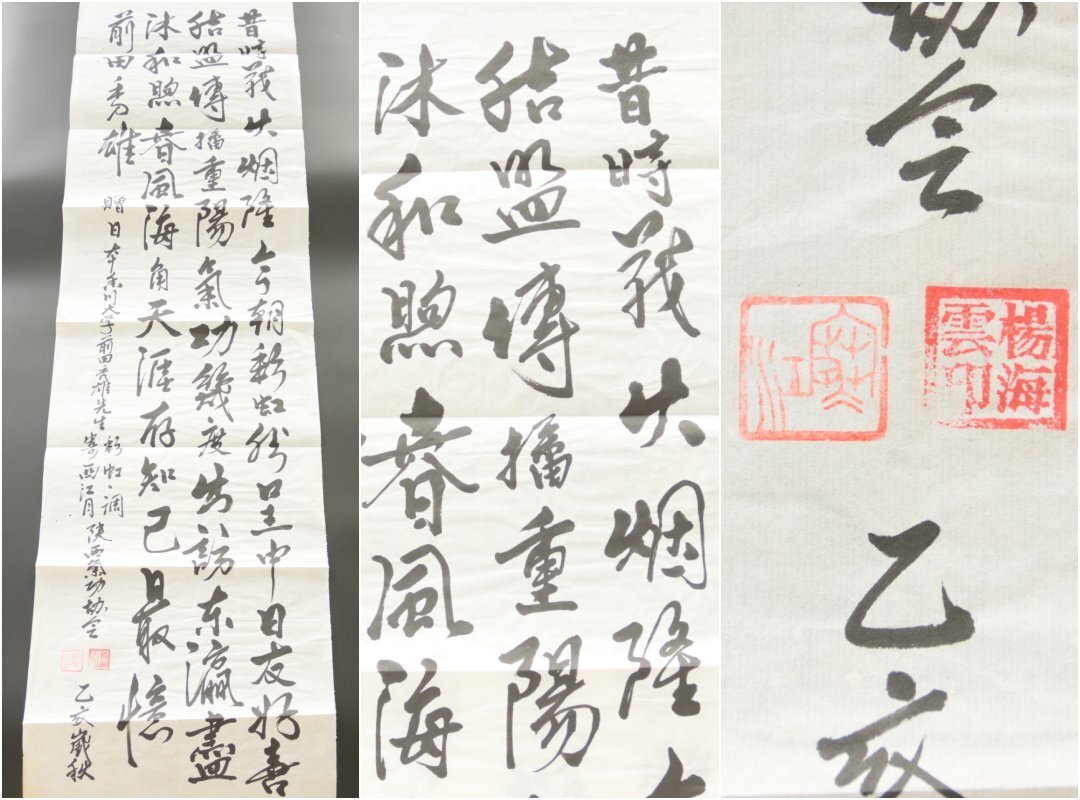 昔時戰火烟隆今朝彩虹中日友好喜
結盟傳播重陽氣功幾度出訪东瀛盡
沐和煦春風海角天涯存知己最憶
前田秀雄
贈日本香川大学前田秀雄先生
彩虹·調
寄西江月
陕西氣功协会
乙亥歲秋
昔時戰火烟隆
結盟傳播重陽
沐和煦春風海
协会
楊海雲印
乙亥